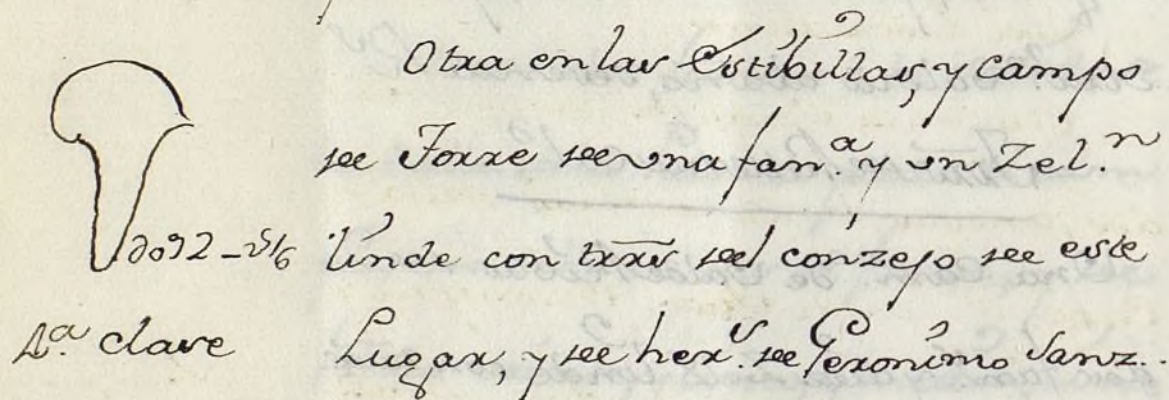 Otra en las Estibillas, y campo
de Torre de una fan.ª y un Zel.n
linde con trrs del conzejo de este
1.ª clave Lugar, y de her.s de Geronimo Sanz.